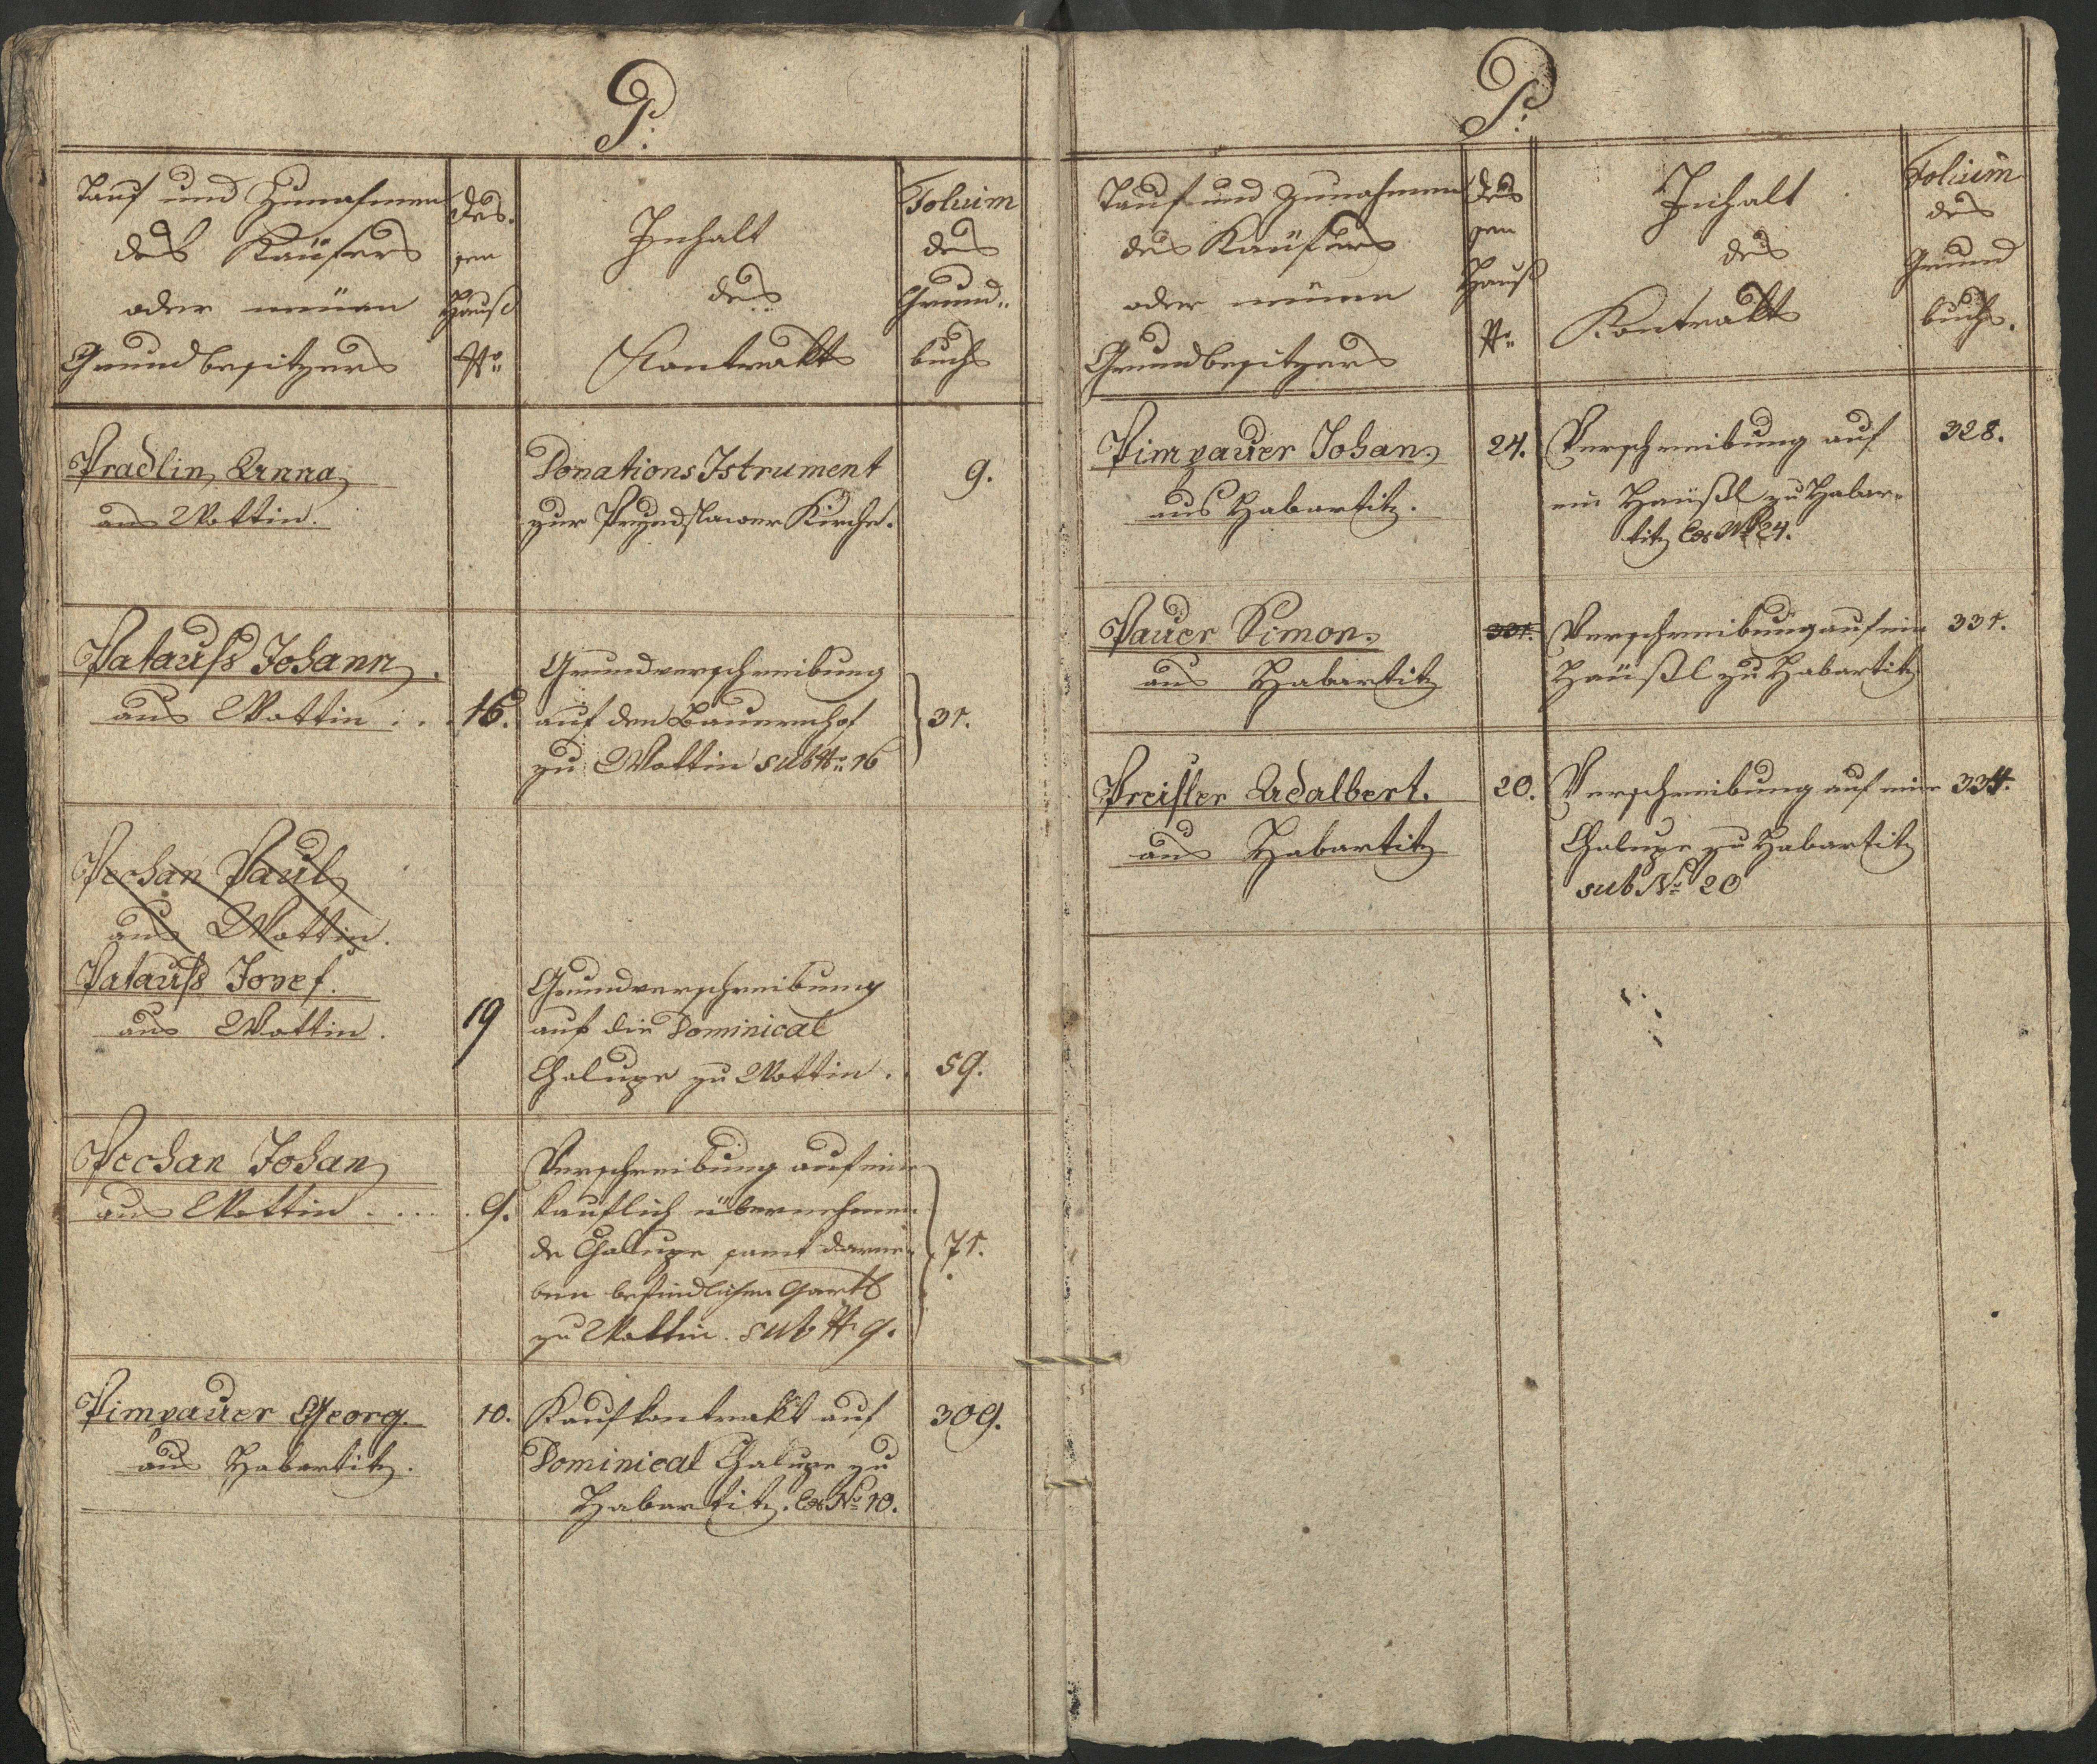 P:
Tauf und Zunahmen
des Käufers
oder neüen
Grundbesitzers
des-
sen
Hauß
Nr:
Inhalt
des
Kontrakts
Folium
des
Grund-
buchs
Pradlin Anna
aus Wottin.
Donations Istrument
zur Przedslawer Kirche.
9.
Patauſs Johann.
aus Wottin . . .
16.
Grundverschreibung
auf den Bauernhof
zu Wottin sub Nr: 16
31.
Pechan Paul
aus Wottin.
Patauſs Josef.
aus Wottin.
19
Grundverschreibung
auf die Dominical
Chalupe zu Wottin.
59.
Pechan Johan
aus Wottin . . . .
9.
Verschreibung auf eine
kauflich übernehmen
de Chalupe samt darne-
ben befindlichen Gartl
zu Wottin. sub Nr 9.
71.
Pimpauer Georg.
aus Habartitz.
10.
Kaufkontrakt auf
Dominical Chalupe zu
Habartitz. Cos No 10.
309.
P:
Tauf und Zunahmen
des Kaüfers
oder neüen
Grundbesitzers
des
sen
Hauß
Nr:
Inhalt
des
Kontrakts
Folium
des
Grund
buchs.
Pimpauer Johan
aus Habartitz.
24.
Verschreibung auf
ein Haüßl zu Habar-
titz Cos No 24.
328.
Pauer Simon.
aus Habartitz
331.
Verschreibung auf ein
Haüßl zu Habartitz
331.
Preisler Adalbert.
aus Habartitz
20.
Verschreibung auf eine
Chalupe zu Habartitz
sub No 20
334.